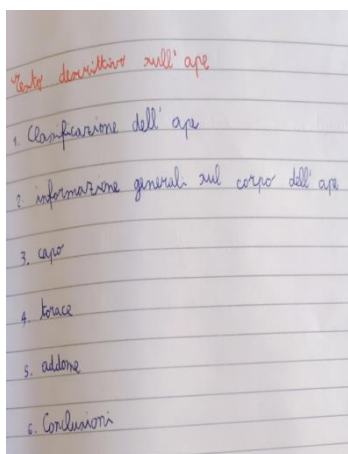 Testo descrittivo sull'ape
1. Clasificazione dell'ape
2. informazione generali sul corpo dell'ape
3. capo
4. torace
5. addome
6. Conclusioni